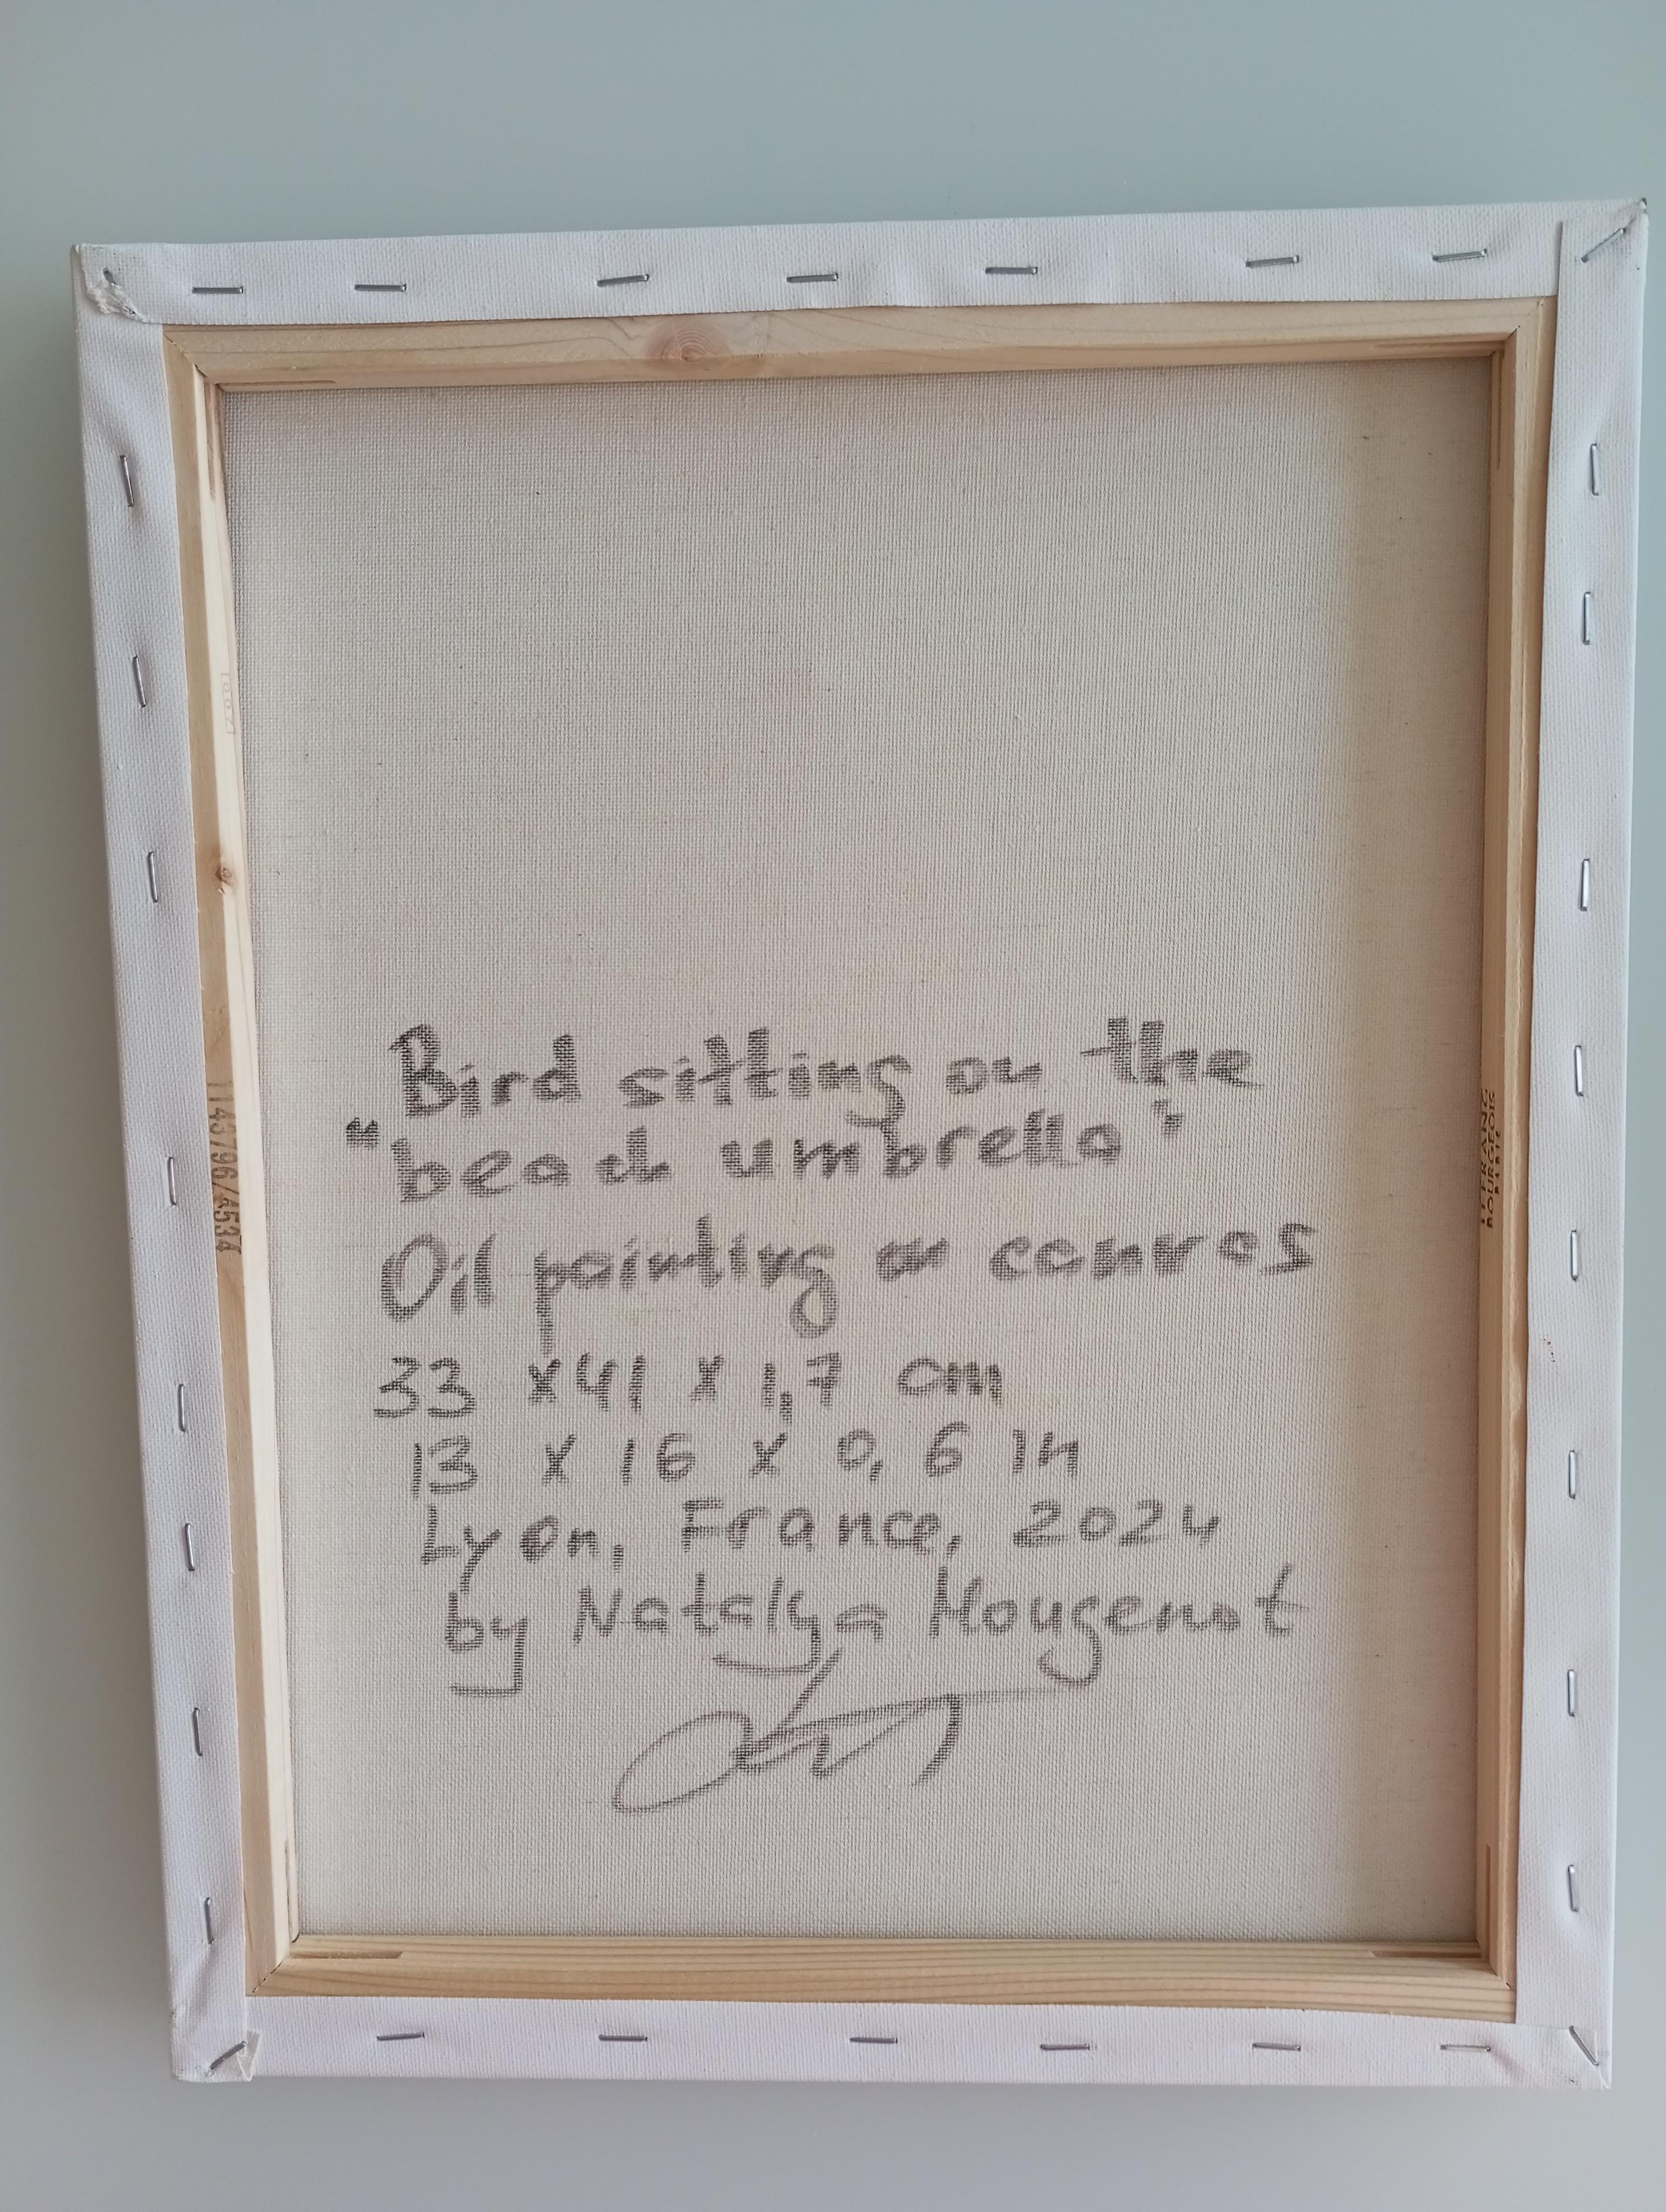 Bird sitting on the
"beach umbrella"
Oil painting on canvas
33 x 41 x 1,7 cm
13 x 16 x 0,6 in
Lyon, France, 2024
by Natalya Mougenot
LEFRANC
BOURGEOIS